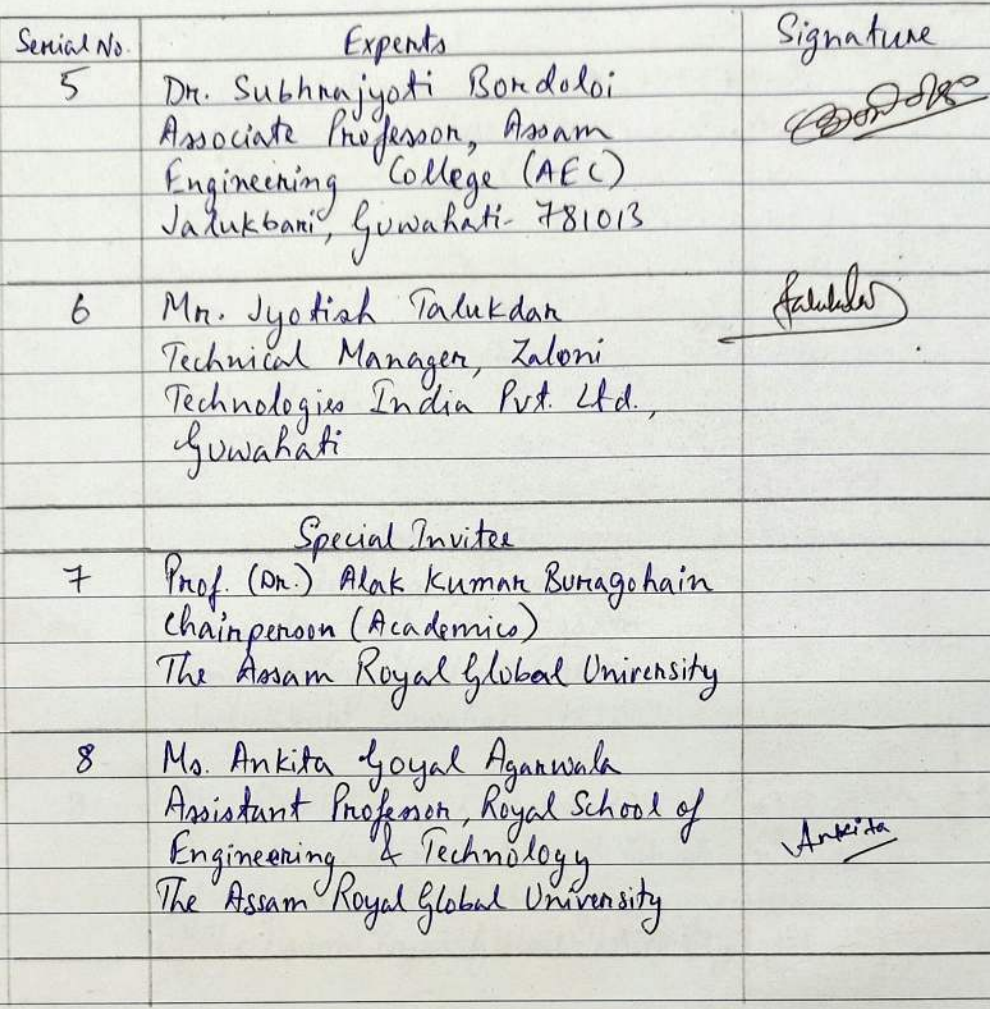 Serial No. Experts Signature
5 Dr. Subhrajyoti Bordoloi
Associate Professor, Assam
Engineering College (AEC)
Jalukbari, Guwahati- 781013
6 Mr. Jyotish Talukdar
Technical Manager, Zaloni
Technologies India Pvt. Ltd.,
Guwahati
Special Invitee
7 Prof. (Dr.) Alak Kumar Buragohain
Chairperson (Academics)
The Assam Royal Global University
8 Ms. Ankita Goyal Agarwala
Assistant Professor, Royal School of
Engineering & Technology
Ankita
The Assam Royal Global University